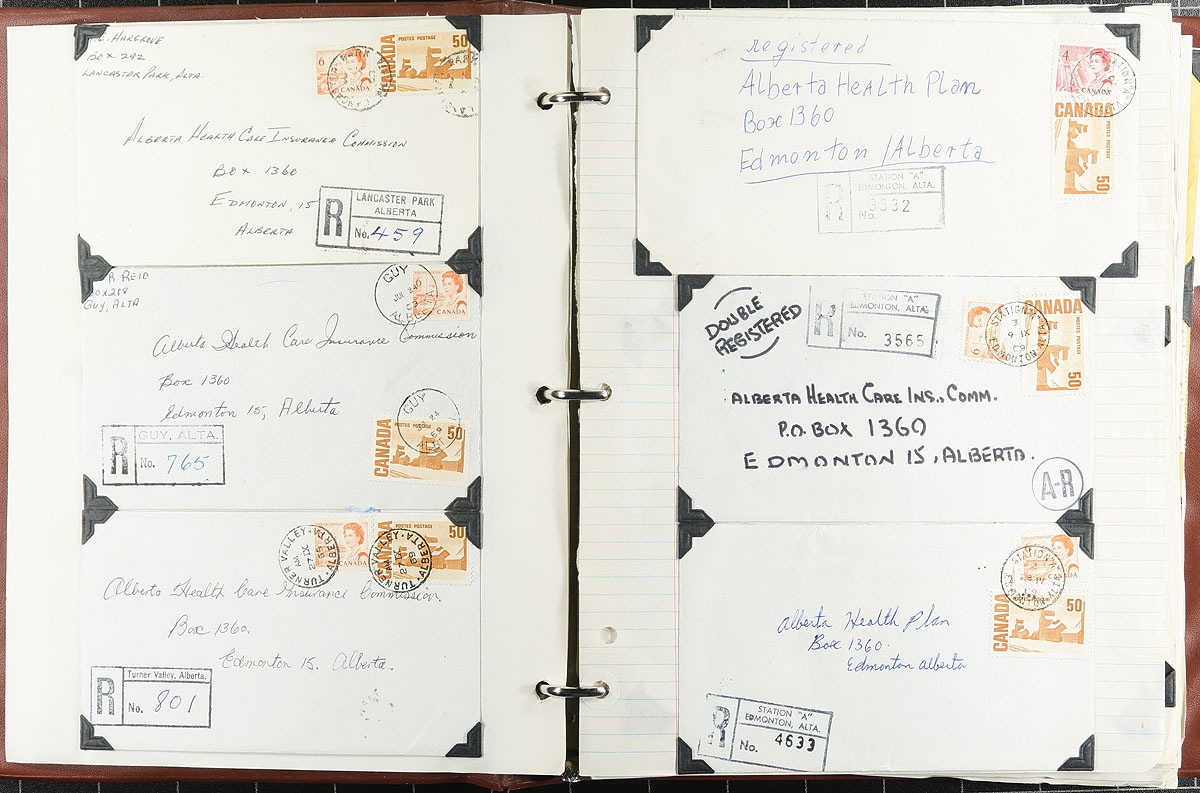 C. HARGROVE
BOX 292
LANCASTER PARK, ALTA.
6
CANADA
CANADA
POSTES POSTAGE
50
ALBERTA HEALTH CARE INSURANCE COMMISSION
BOX 1360
EDMONTON, 15
ALBERTA
R
LANCASTER PARK
ALBERTA
No. 459
R REID
BOX 288
GUY, ALTA
GUY
JUL 24
ALBERTA
CANADA
Alberta Health Care Insurance Commission
Box 1360
Edmonton 15, Alberta
GUY
24
69
CANADA
50
R
GUY, ALTA.
No. 765
TURNER VALLEY · ALBERTA
AM
27 IX
69
CANADA
TURNER VALLEY · ALBERTA
AM
27 IX
69
CANADA
POSTES POSTAGE
50
Alberta Health Care Insurance Commission.
Box 1360.
Edmonton 15. Alberta.
R
Turner Valley, Alberta.
No. 801
registered
Alberta Health Plan
Box 1360
Edmonton / Alberta
4
CANADA
CANADA
POSTES POSTAGE
50
R
STATION "A"
EDMONTON, ALTA.
No. 3332
DOUBLE
REGISTERED
R
STATION "A"
EDMONTON, ALTA.
No. 3565
6
STATION A
3
9 IX
69
EDMONTON · ALTA
CANADA
POSTES POSTAGE
50
ALBERTA HEALTH CARE INS., COMM.
P.O. BOX 1360
EDMONTON 15, ALBERTA.
A-R
STATION A
EDMONTON · ALTA
CANADA
50
Alberta Health Plan
Box 1360.
Edmonton alberta
R
STATION "A"
EDMONTON, ALTA.
No. 4633